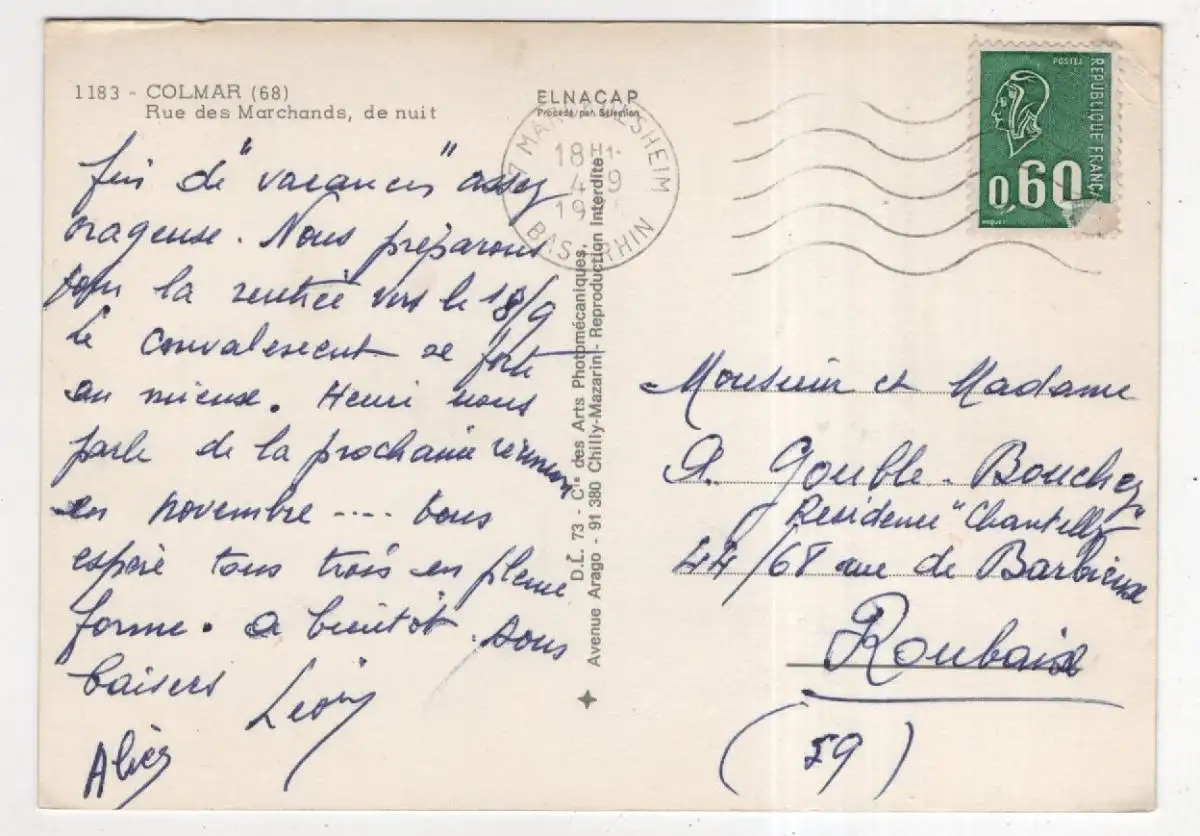 1183 - COLMAR (68)
Rue des Marchands, de nuit
ELNACAP
Procédé par Sélection
18H
4-9
19
BAS RHIN
POSTES
REPUBLIQUE FRANÇ
0,60
fin de "vacances" assez
orageuse. Nous préparons
pour la rentrée vers le 18/9
le convalescent se porte
au mieux. Henri nous
parle de la prochaine réunion
en novembre .... Vous
espère tous trois en pleine
forme. a bientôt. Bons
baisers
Alice
D.L. 73 - Cie des Arts Photomécaniques,
Avenue Arago - 91 380 Chilly-Mazarin - Reproduction Interdite.
Monsieur et Madame
A. Gouble-Bouchez
Residence "Chantelly"
44/68 rue de Barbieux
Roubaix
(59)